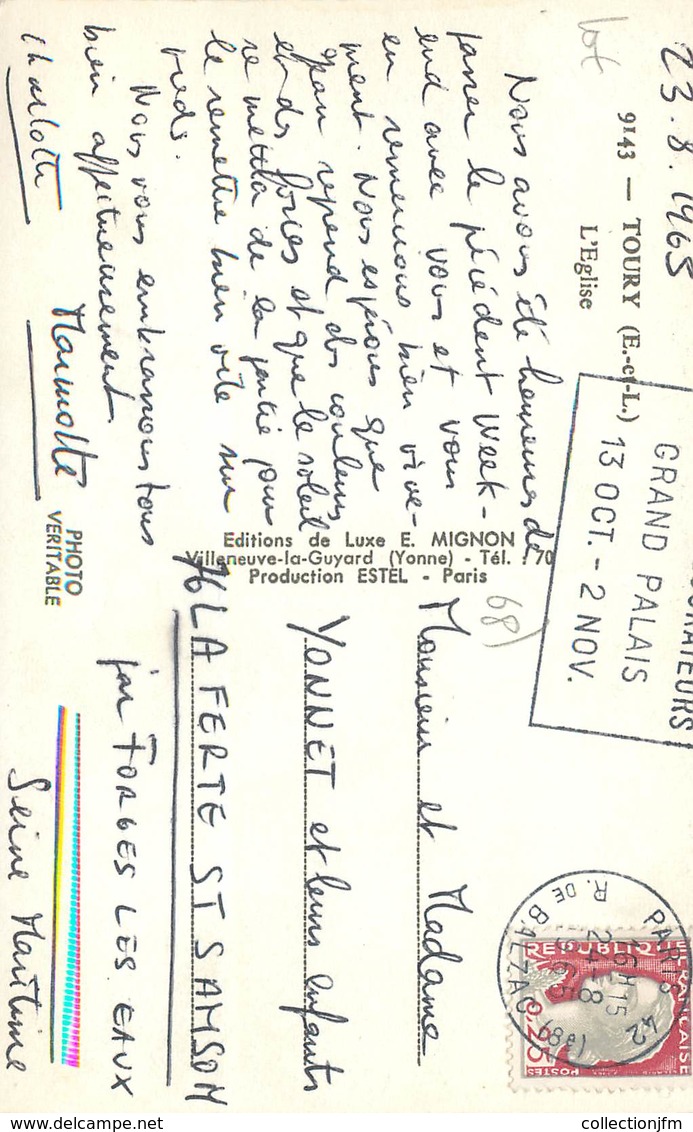 23.8.1965
lot
9143 — TOURY (E.-et-L.)
L'Eglise
Nous avons été heureuses de
passer le précédent Week-
end avec vous et vous
en remercions bien vive-
ment. Nous espérons que
Yvan reprend des couleurs
et des forces et que le soleil
se mettra de la partie pour
le remettre bien vite sur
pieds.
Nous vous embrassons tous
bien affectueusement.
Charlotte
Marinette
PHOTO
VERITABLE
Editions de Luxe E. MIGNON
Villeneuve-la-Guyard (Yonne) - Tél. : 70
Production ESTEL - Paris
68)
GRAND PALAIS
13 OCT. - 2 NOV.
PARIS
R. DE BALZAC (8e)
15H15
24-8
REPUBLIQUE FRANÇAISE
0,25
POSTES
Monsieur et Madame
YONNET et leurs enfants
76 LA FERTE ST SAMSON
par FORGES LES EAUX
Seine Maritime
www.delcampe.net
collectionjfm